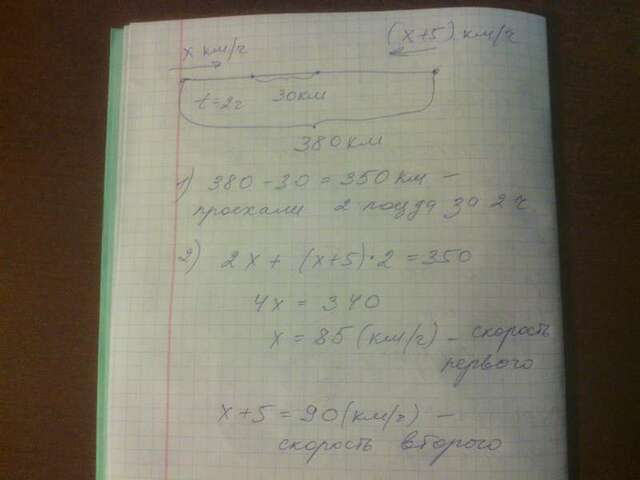 x км/ч
(x+5) км/ч
t=2ч
30км
380 км
1) 380 - 30 = 350 км -
проехали 2 поезда за 2 ч
2) 2x + (x+5)·2 = 350
4x = 340
x = 85 (км/ч) - скорость
первого
x+5 = 90 (км/ч) -
скорость второго